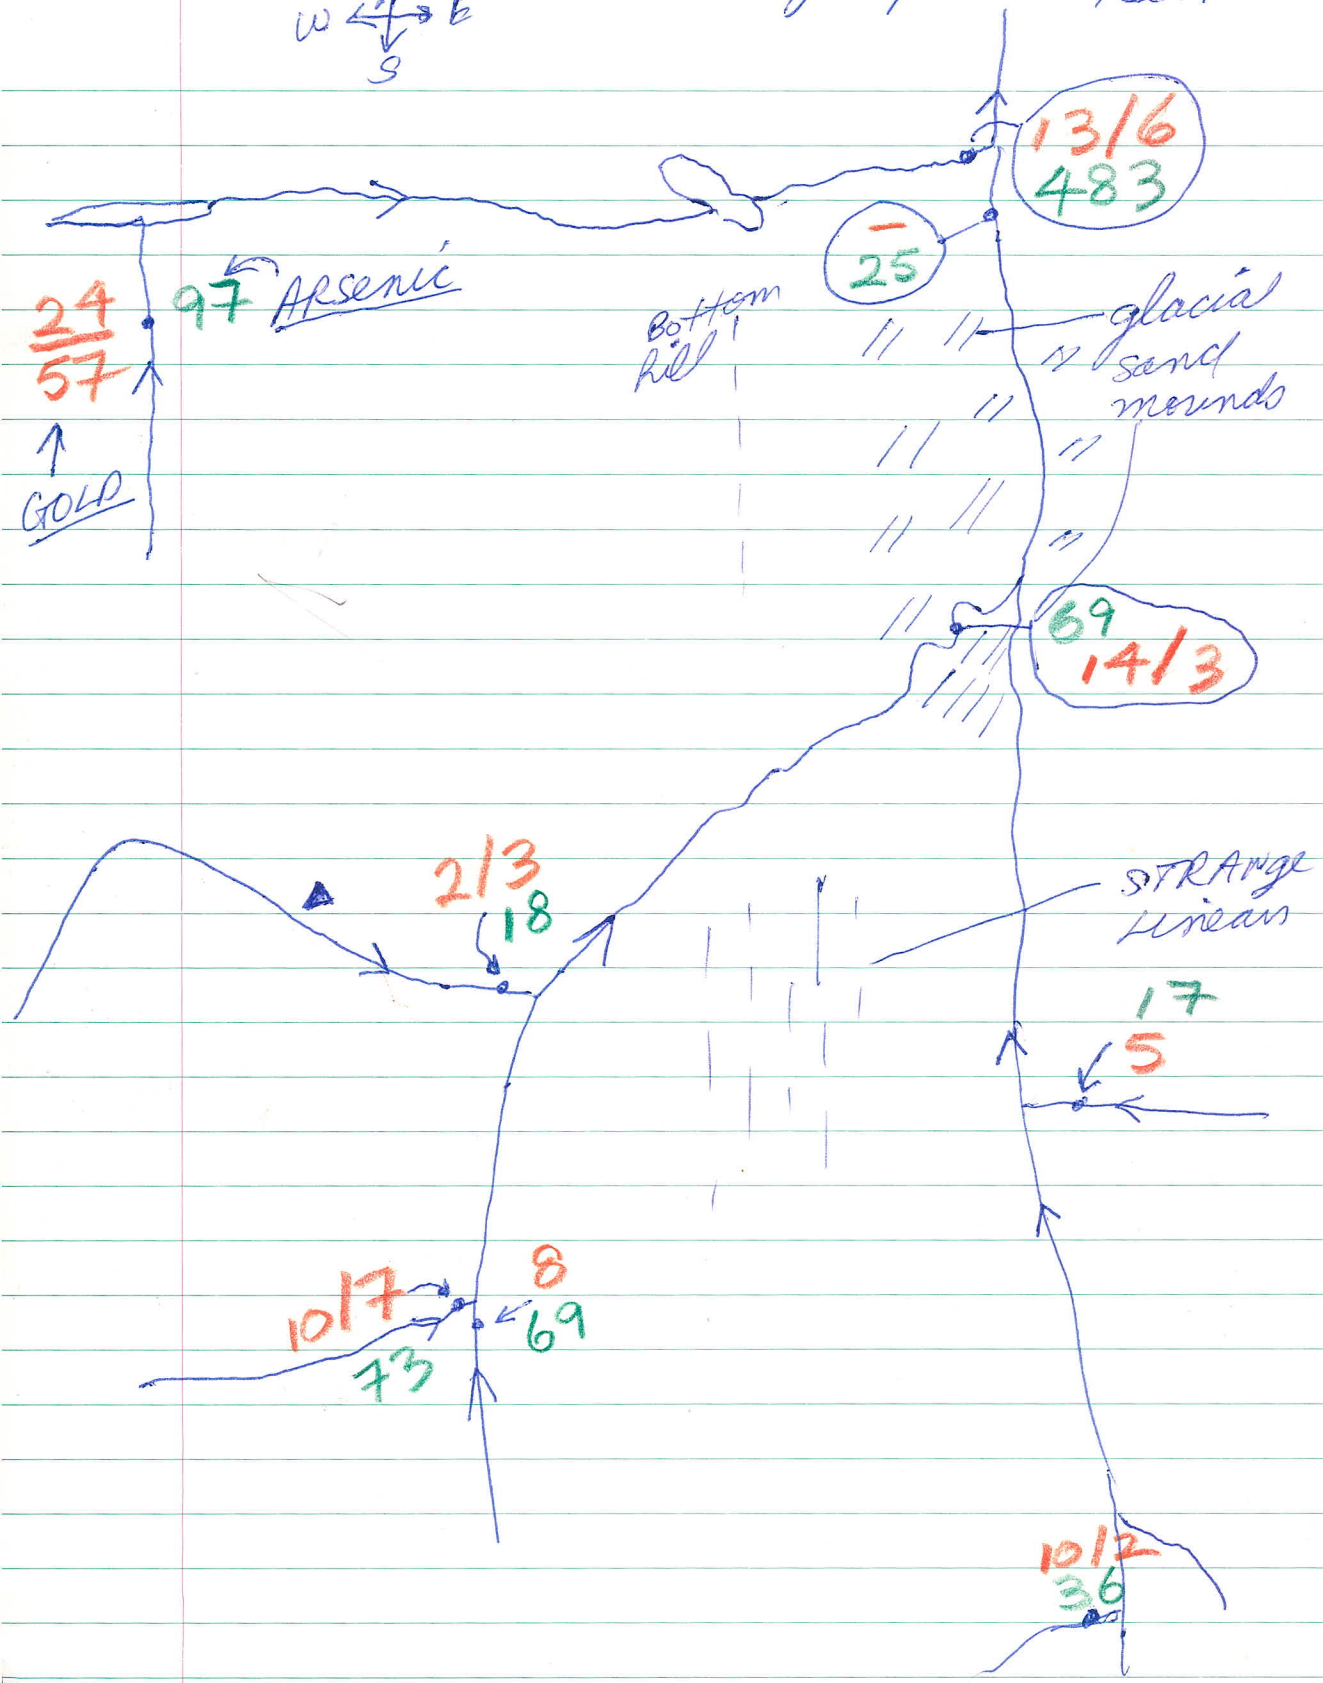 W E
S
13/6
483
-
25
24
57
97 ARSENIC
GOLD
Bottom
hill
glacial
sand
mounds
69
14/3
2/3
18
STRANGE
Linears
17
5
10/7
73
8
69
10/2
36